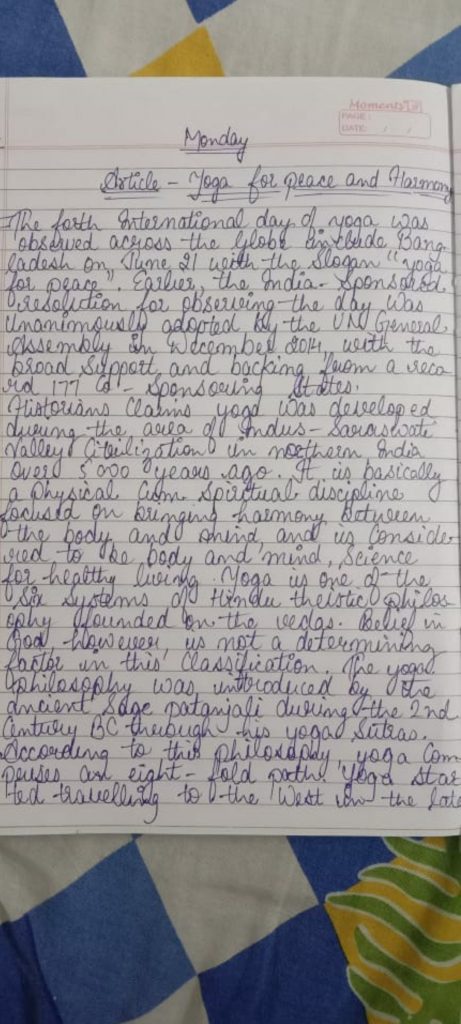 Moments
PAGE:
DATE: / /
Monday
Article - Yoga for peace and Harmony
The forth International day of yoga was
observed across the globe Bang-
ladesh on June 21 with the Slogan "yoga
for peace". Earlier, the India-Sponsored
resolution for observing the day was
unanimously adopted by the UN General
Assembly in December 2014, with the
broad support and backing from a reco
rd 177 Co-Sponsoring States.
Historians Claims yoga was developed
during the area of Indus-Saraswati
Valley Civilization in northern India
over 5000 years ago. It is basically
a physical Cum Spiritual discipline
focused on bringing harmony between
the body and mind and is Conside-
red to be body and mind, Science
for healthy living. Yoga is one of the
Six Systems of Hindu theistic philos
ophy founded on the vedas. Belief in
God however, is not a determining
factor in this Classification. The yoga
philosophy was introduced by the
ancient Sage patanjali during the 2nd
Century BC through his yoga Sutras.
According to this philosophy, yoga Com
prises an eight-fold path. Yoga Star
ted travelling to the West in the late